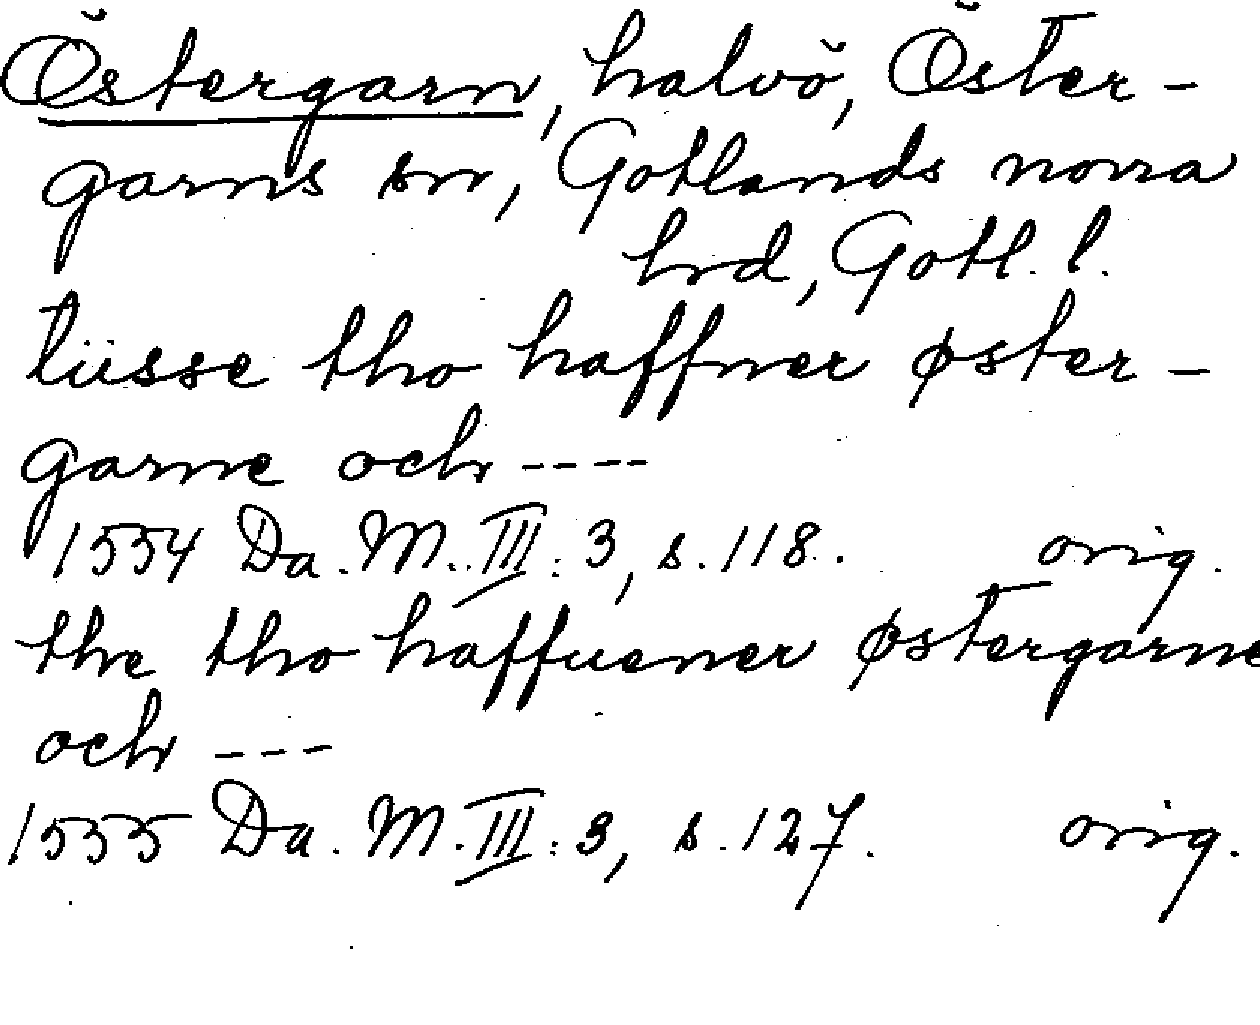 Östergarn, halvö, Öster-
garns sn, Gotlands norra
hrd, Gotl. l.
tüsse tho haffner øster-
garne och ----
1534 Da. M. III: 3, s. 118. orig.
the tho haffuener østergarne
och ---
1535 Da. M. III: 3, s. 127. orig.